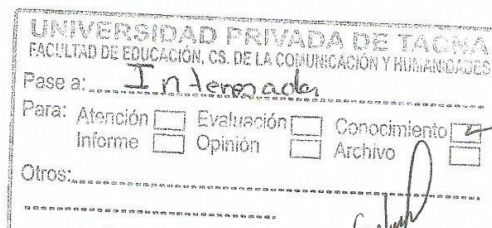 UNIVERSIDAD PRIVADA DE TACNA
FACULTAD DE EDUCACIÓN, CS. DE LA COMUNICACIÓN Y HUMANIDADES
Pase a: Interesado
Para: Atención Evaluación Conocimiento
Informe Opinión Archivo
Otros: